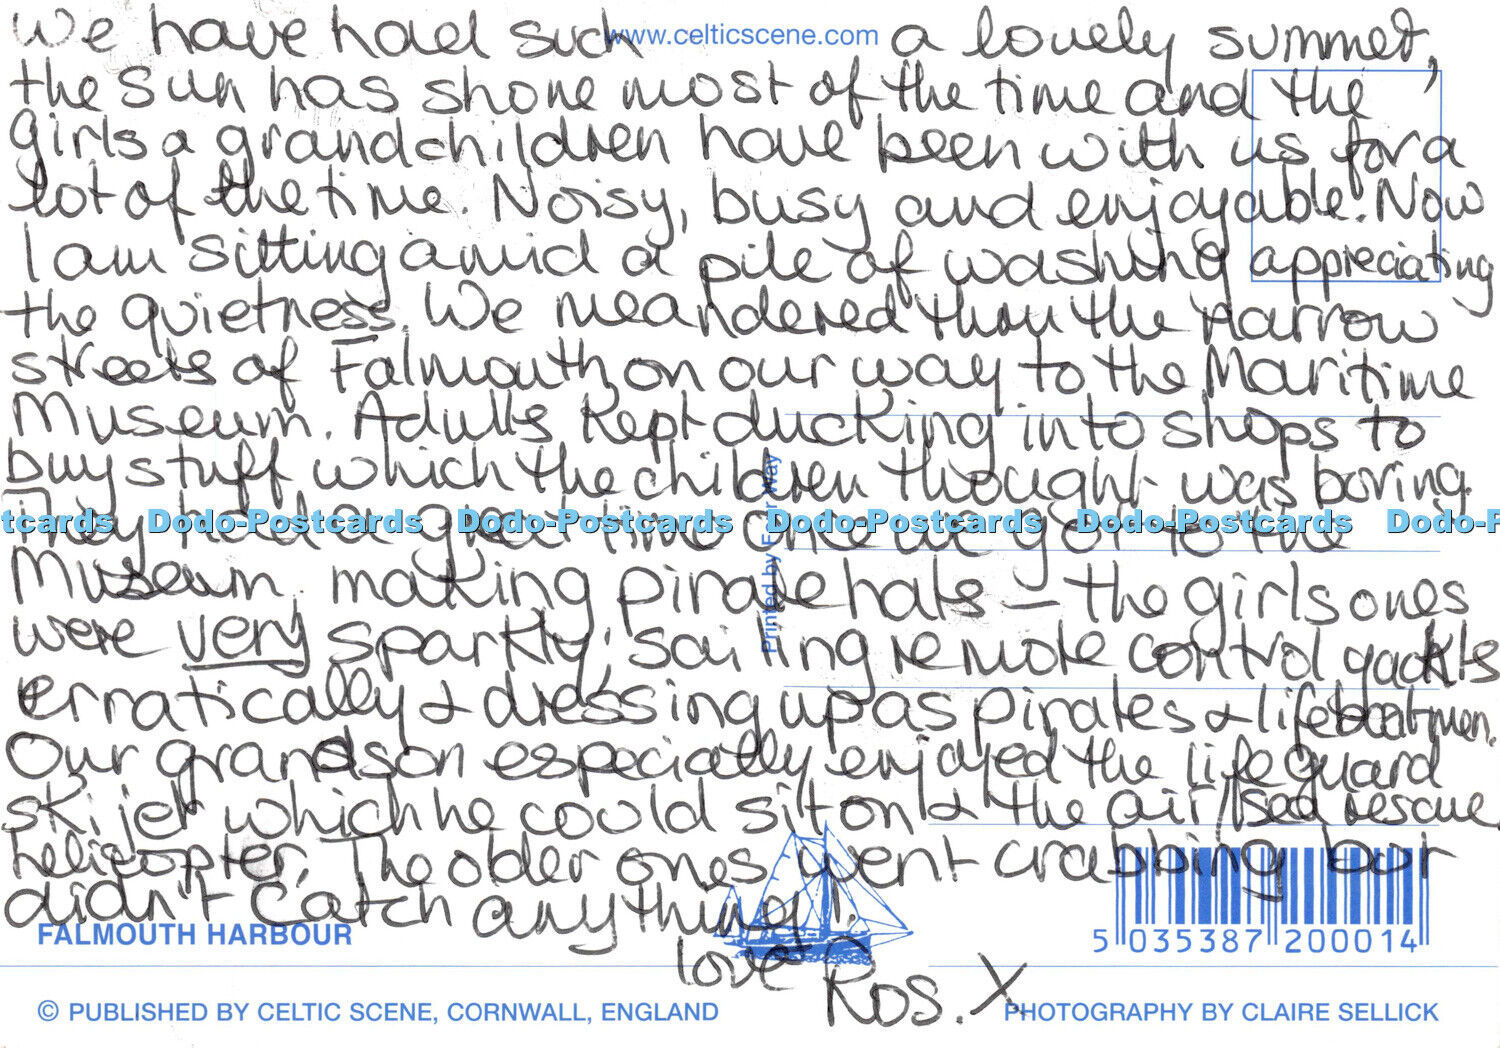 We have had such a lovely summer,
www.celticscene.com
the sun has shone most of the time and the
girls & grandchildren have been with us for a
lot of the time. Noisy, busy and enjoyable. Now
I am sitting amid a pile of washing appreciating
the quietness. We meandered thru the narrow
streets of Falmouth on our way to the Maritime
Museum. Adults kept ducking into shops to
buy stuff which the children thought was boring.
They had a great time once we got to the
tcards Dodo-Postcards Dodo-Postcards Dodo-Postcards Dodo-Postcards Dodo-P
Museum. making pirate hats – the girls ones
were very sparkly; sailing remote control yachts
Printed by Four Way
erratically & dressing up as pirates & lifeboatmen.
Our grandson especially enjoyed the lifeguard
ski jet which he could sit on & the air/sea rescue
helicopter. The older ones went crabbing but
didn't catch anything!
love Ros. X
FALMOUTH HARBOUR
5 035387 200014
© PUBLISHED BY CELTIC SCENE, CORNWALL, ENGLAND
PHOTOGRAPHY BY CLAIRE SELLICK